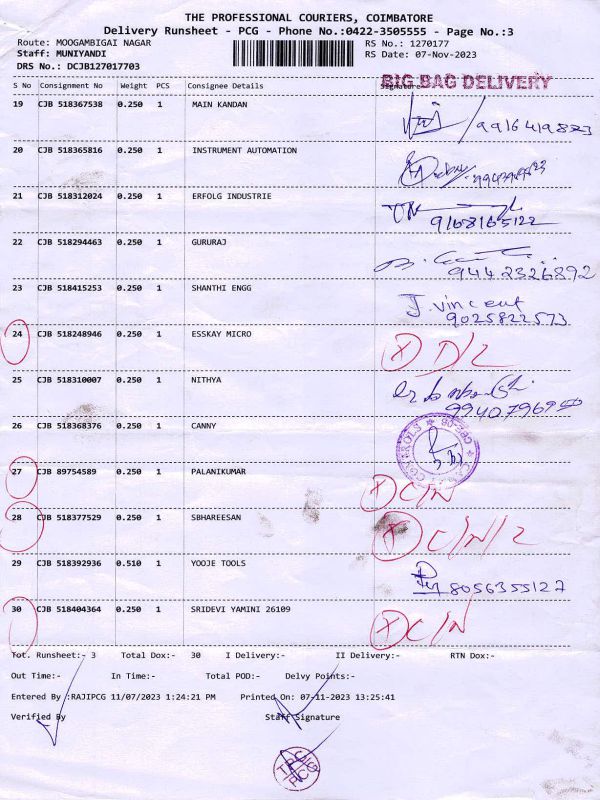 THE PROFESSIONAL COURIERS, COIMBATORE
Delivery Runsheet - PCG - Phone No.:0422-3505555 - Page No.:3
Route: MOOGAMBIGAI NAGAR RS No.: 1270177
Staff: MUNIYANDI RS Date: 07-Nov-2023
DRS No.: DCJB127017703
BIG BAG DELIVERY
S No Consignment No Weight PCS Consignee Details Signature
19 CJB 518367538 0.250 1 MAIN KANDAN
9916419873
20 CJB 518365816 0.250 1 INSTRUMENT AUTOMATION
21 CJB 518312024 0.250 1 ERFOLG INDUSTRIE
9168165122
22 CJB 518294463 0.250 1 GURURAJ
9442326892
23 CJB 518415253 0.250 1 SHANTHI ENGG
J. Vincent
9025822573
24 CJB 518248946 0.250 1 ESSKAY MICRO
X D/L
25 CJB 518310007 0.250 1 NITHYA
26 CJB 518368376 0.250 1 CANNY
CONTROLS
27 CJB 89754589 0.250 1 PALANIKUMAR
X C/N
28 CJB 518377529 0.250 1 SBHAREESAN
X C/N/2
29 CJB 518392936 0.510 1 YOOJE TOOLS
8056355127
30 CJB 518404364 0.250 1 SRIDEVI YAMINI 26109
X C/N
Tot. Runsheet:- 3 Total Dox:- 30 I Delivery:- II Delivery:- RTN Dox:-
Out Time:- In Time:- Total POD:- Delvy Points:-
Entered By :RAJIPCG 11/07/2023 1:24:21 PM Printed On: 07-11-2023 13:25:41
Verified By Staff Signature
TPC
PCG